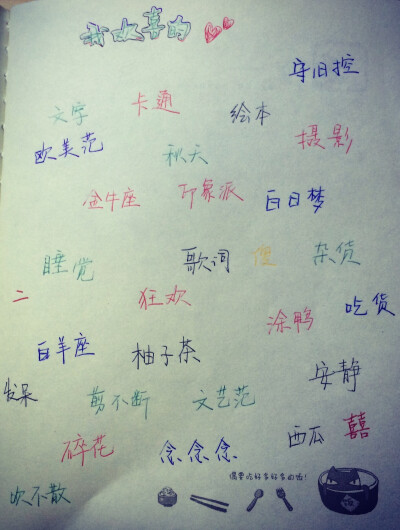 我欢喜的
守旧控
文字 卡通 绘本
欧美范 秋天 摄影
金牛座 印象派 白日梦
睡觉 歌词 杂货
二 狂欢 涂鸭 吃货
白羊座 柚子茶
发呆 剪不断 文艺范 安静
碎花 念念念 西瓜 囍
偶要吃好多好多的
吹不散